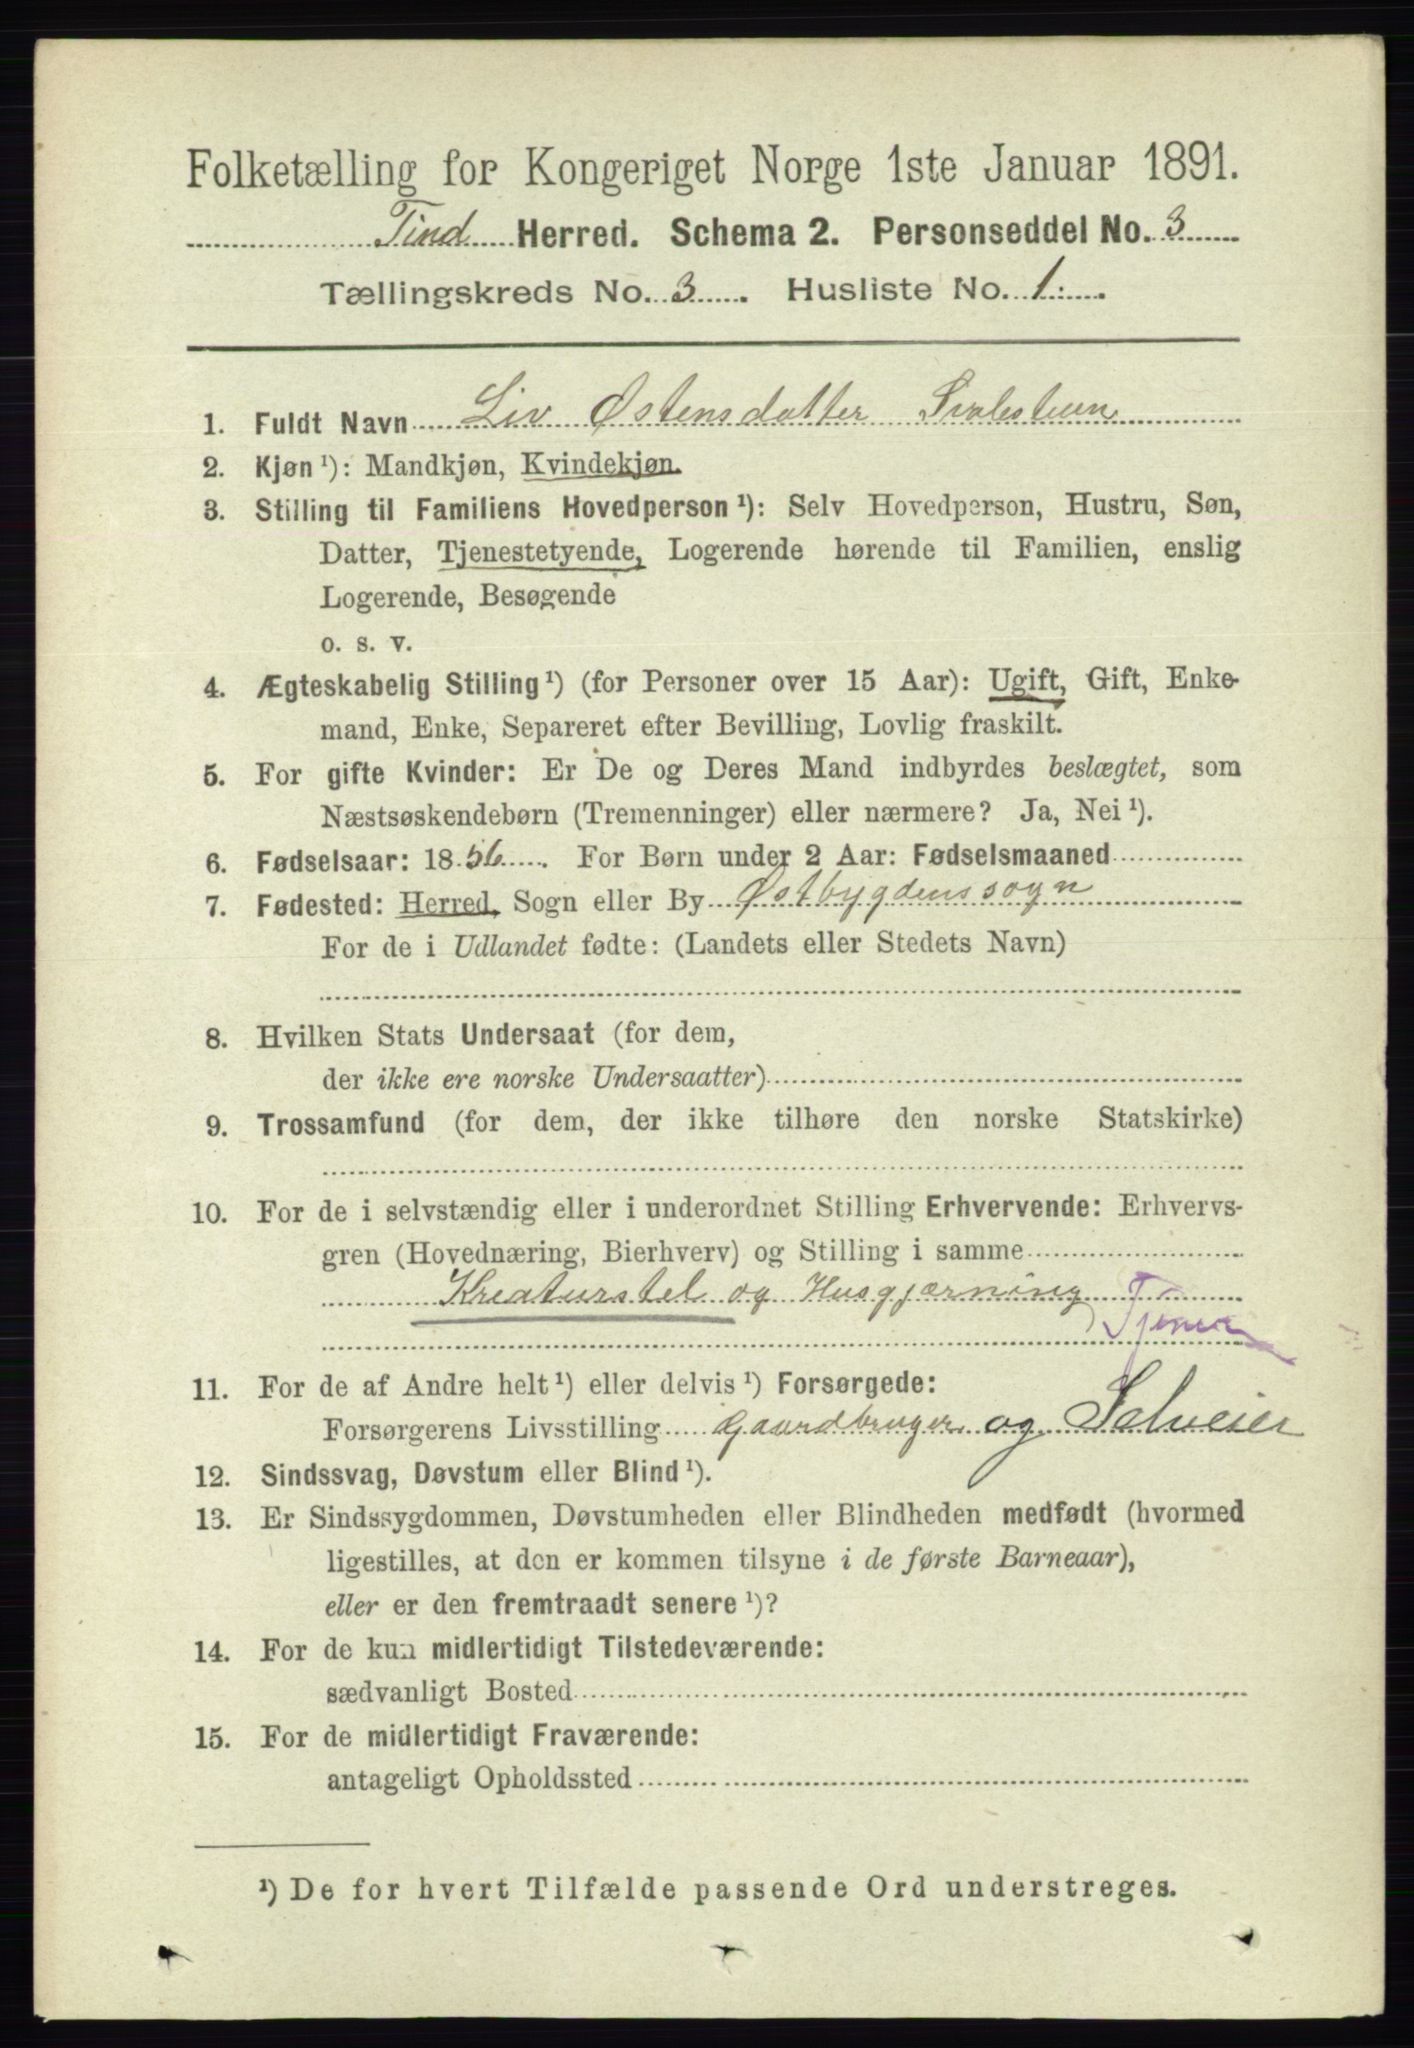 Folketælling for Kongeriget Norge 1ste Januar 1891.
Tind Herred. Schema 2. Personseddel No. 3
Tællingskreds No. 3. Husliste No. 1.
1. Fuldt Navn Liv Østensdatter
2. Kjøn ¹): Mandkjøn, Kvindekjøn.
3. Stilling til Familiens Hovedperson ¹): Selv Hovedperson, Hustru, Søn,
Datter, Tjenestetyende, Logerende hørende til Familien, enslig
Logerende, Besøgende
o. s. v.
4. Ægteskabelig Stilling ¹) (for Personer over 15 Aar): Ugift, Gift, Enke-
mand, Enke, Separeret efter Bevilling, Lovlig fraskilt.
5. For gifte Kvinder: Er De og Deres Mand indbyrdes beslægtet, som
Næstsøskendebørn (Tremenninger) eller nærmere? Ja, Nei ¹).
6. Fødselsaar: 1856. For Børn under 2 Aar: Fødselsmaaned
7. Fødested: Herred, Sogn eller By Østbygdens sogn
For de i Udlandet fødte: (Landets eller Stedets Navn)
8. Hvilken Stats Undersaat (for dem,
der ikke ere norske Undersaatter)
9. Trossamfund (for dem, der ikke tilhøre den norske Statskirke)
10. For de i selvstændig eller i underordnet Stilling Erhvervende: Erhvervs-
gren (Hovednæring, Bierhverv) og Stilling i samme
Kreaturstel og Husgjærning
Tjener
11. For de af Andre helt ¹) eller delvis ¹) Forsørgede:
Forsørgerens Livsstilling Gaardbruger og Selveier
12. Sindssvag, Døvstum eller Blind ¹).
13. Er Sindssygdommen, Døvstumheden eller Blindheden medfødt (hvormed
ligestilles, at den er kommen tilsyne i de første Barneaar),
eller er den fremtraadt senere ¹)?
14. For de kun midlertidigt Tilstedeværende:
sædvanligt Bosted
15. For de midlertidigt Fraværende:
antageligt Opholdssted
¹) De for hvert Tilfælde passende Ord understreges.